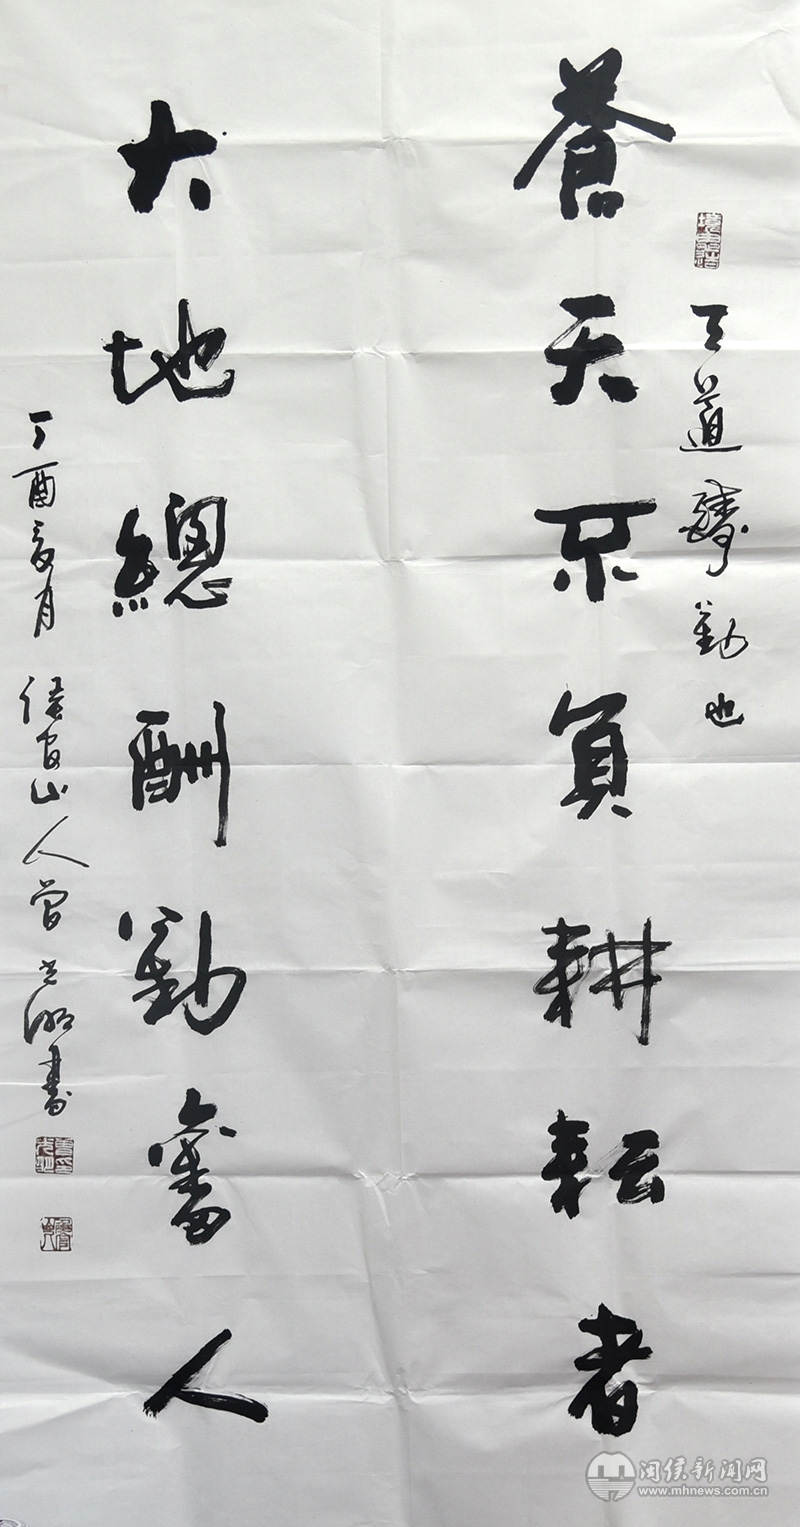 天道酬勤也
蒼天不負耕耘者
大地總酬勤奮人
丁酉亥月 侯官山人曾光明書
闽侯新闻网
www.mhnews.com.cn